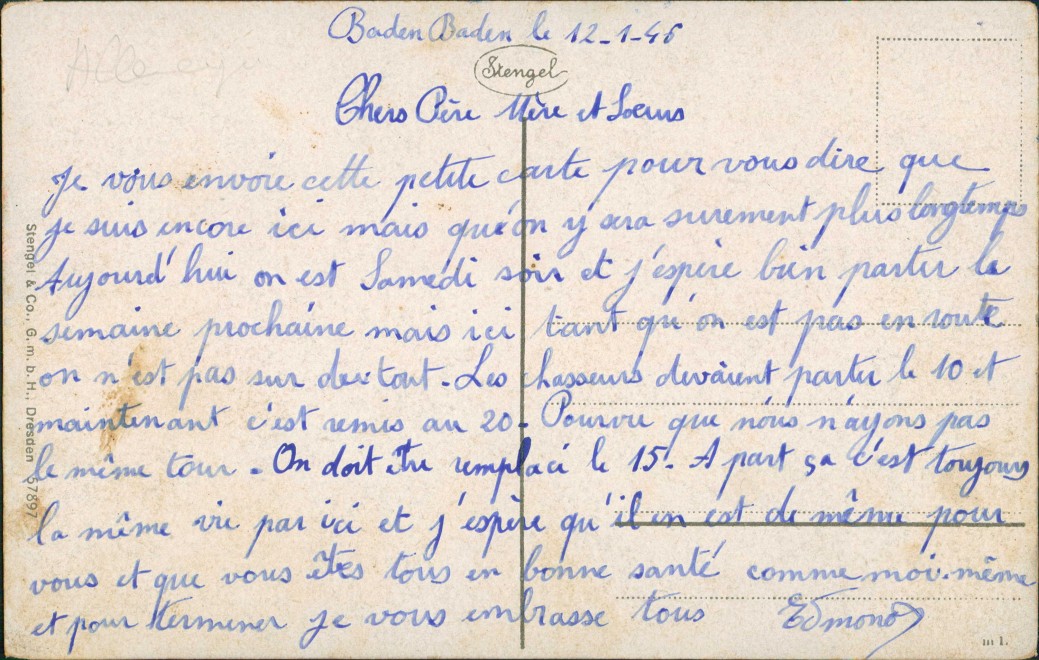 Baden Baden le 12-1-46
Stengel
Chers Père Mère et Soeurs
Je vous envoie cette petite carte pour vous dire que
je suis encore ici mais qu'on y sera surement plus longtemps
Aujourd'hui on est Samedi soir et j'espère bien partir la
semaine prochaine mais ici tant qu'on est pas en route
on n'est pas sur du tout. Les chasseurs devaient partir le 10 et
maintenant c'est remis au 20. Pourvu que nous n'ayons pas
le même tour. On doit être remplacé le 15. A part ça c'est toujours
la même vie par ici et j'espère qu'il en est de même pour
vous et que vous êtes tous en bonne santé comme moi-même
et pour terminer je vous embrasse tous Edmond
Stengel & Co., G.m.b.H., Dresden 57897
m 1.